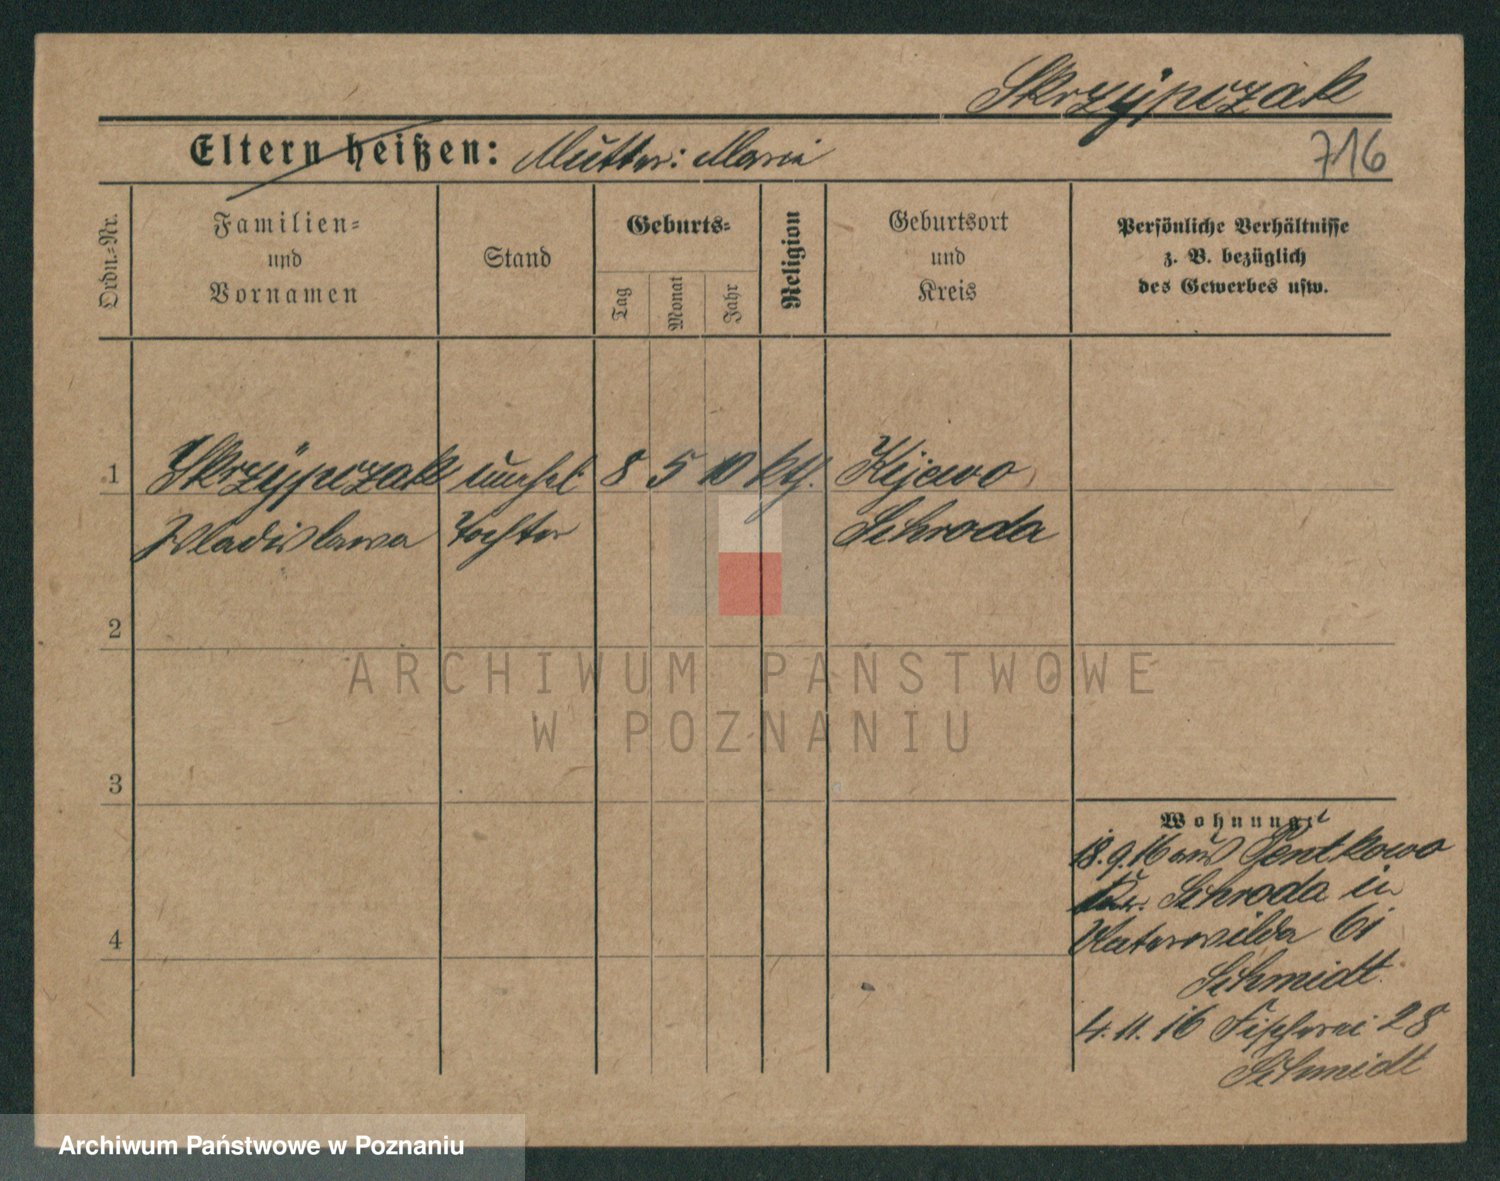 Skrzypczak
Eltern heißen: Mutter: Maria
716
Ordn.-Nr.
Familien-
und
Vornamen
Stand
Geburts-
Tag
Monat
Jahr
Religion
Geburtsort
und
Kreis
Persönliche Verhältnisse
z. B. bezüglich
des Gewerbes usw.
1 Skrzypczak unehel. 8 5 10 kth. Kijewo
Wladislawa Tochter Schroda
2
3
4
ARCHIWUM PAŃSTWOWE
W POZNANIU
Wohnung:
18.9.16 aus Pentkowo
Kr. Schroda in
Unterwilda 61
Schmidt
4.11.16 Fischerei 28
Schmidt
Archiwum Państwowe w Poznaniu